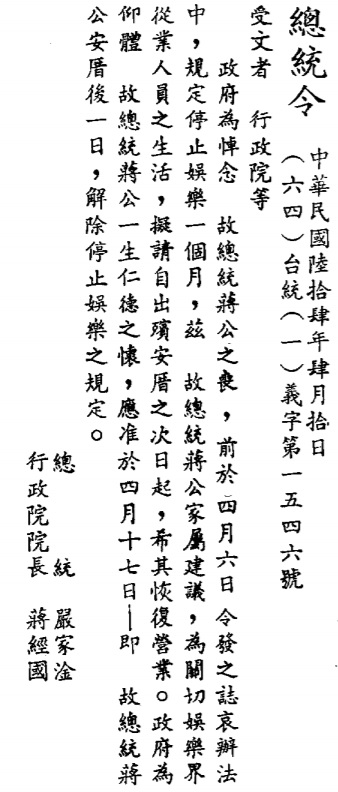 總統令
中華民國陸拾肆年肆月拾日
（六四）台統（一）義字第一五四六號
受文者　行政院等
政府為悼念　故總統蔣公之喪，前於四月六日令發之誌哀辦法
中，規定停止娛樂一個月，茲　故總統蔣公家屬建議，為關切娛樂界
從業人員之生活，擬請自出殯安厝之次日起，希其恢復營業。政府為
仰體　故總統蔣公一生仁德之懷，應准於四月十七日—即　故總統蔣
公安厝後一日，解除停止娛樂之規定。
總　統　嚴家淦
行政院院長　蔣經國